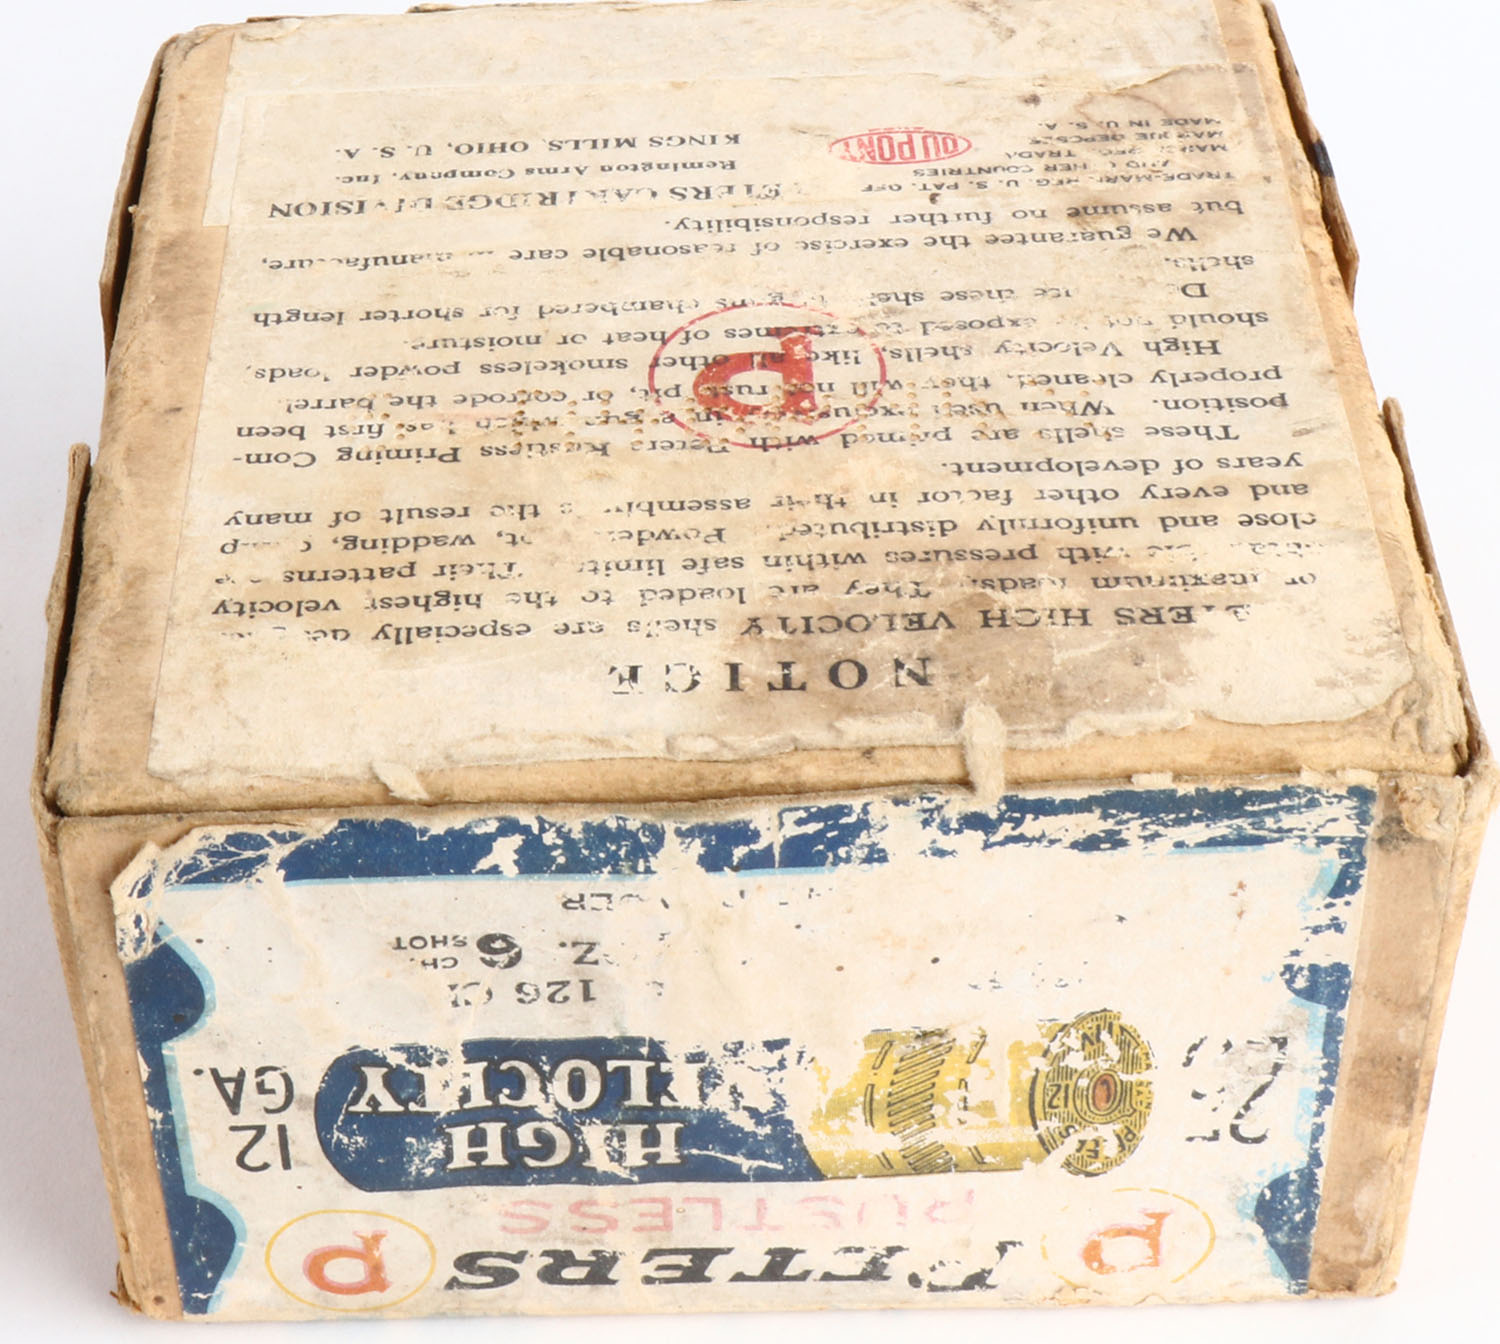 NOTICE
HIGH VELOCITY shells are especially
or maximum loads. They are loaded to the highest velocity
with pressures within safe limits. Their patterns are
close and uniformly distributed. wadding,
and every other factor in their assembly is the result of many
years of development.
These shells are primed with Peters Rustless Priming Com-
position. When used in a gun which has first been
properly cleaned, they will not rust, pit, or corrode the barrel.
High Velocity shells, like all other smokeless powder loads,
should not be exposed to extremes of heat or moisture.
these shells in guns chambered for shorter length
shells.
We guarantee the exercise of reasonable care
but assume no further responsibility.
PETERS CARTRIDGE DIVISION
Remington Arms Company, Inc.
KINGS MILLS, OHIO, U. S. A.
TRADE-MARK REG. U. S. PAT. OFF
AND OTHER COUNTRIES
MARCA REG. TRADA
MARQUE DEPOSEE
MADE IN U. S. A.
DU PONT
P
P PETERS P
RUSTLESS
25
PETERS
12
HIGH
VELOCITY
12
GA.
126
6 CH.
SHOT